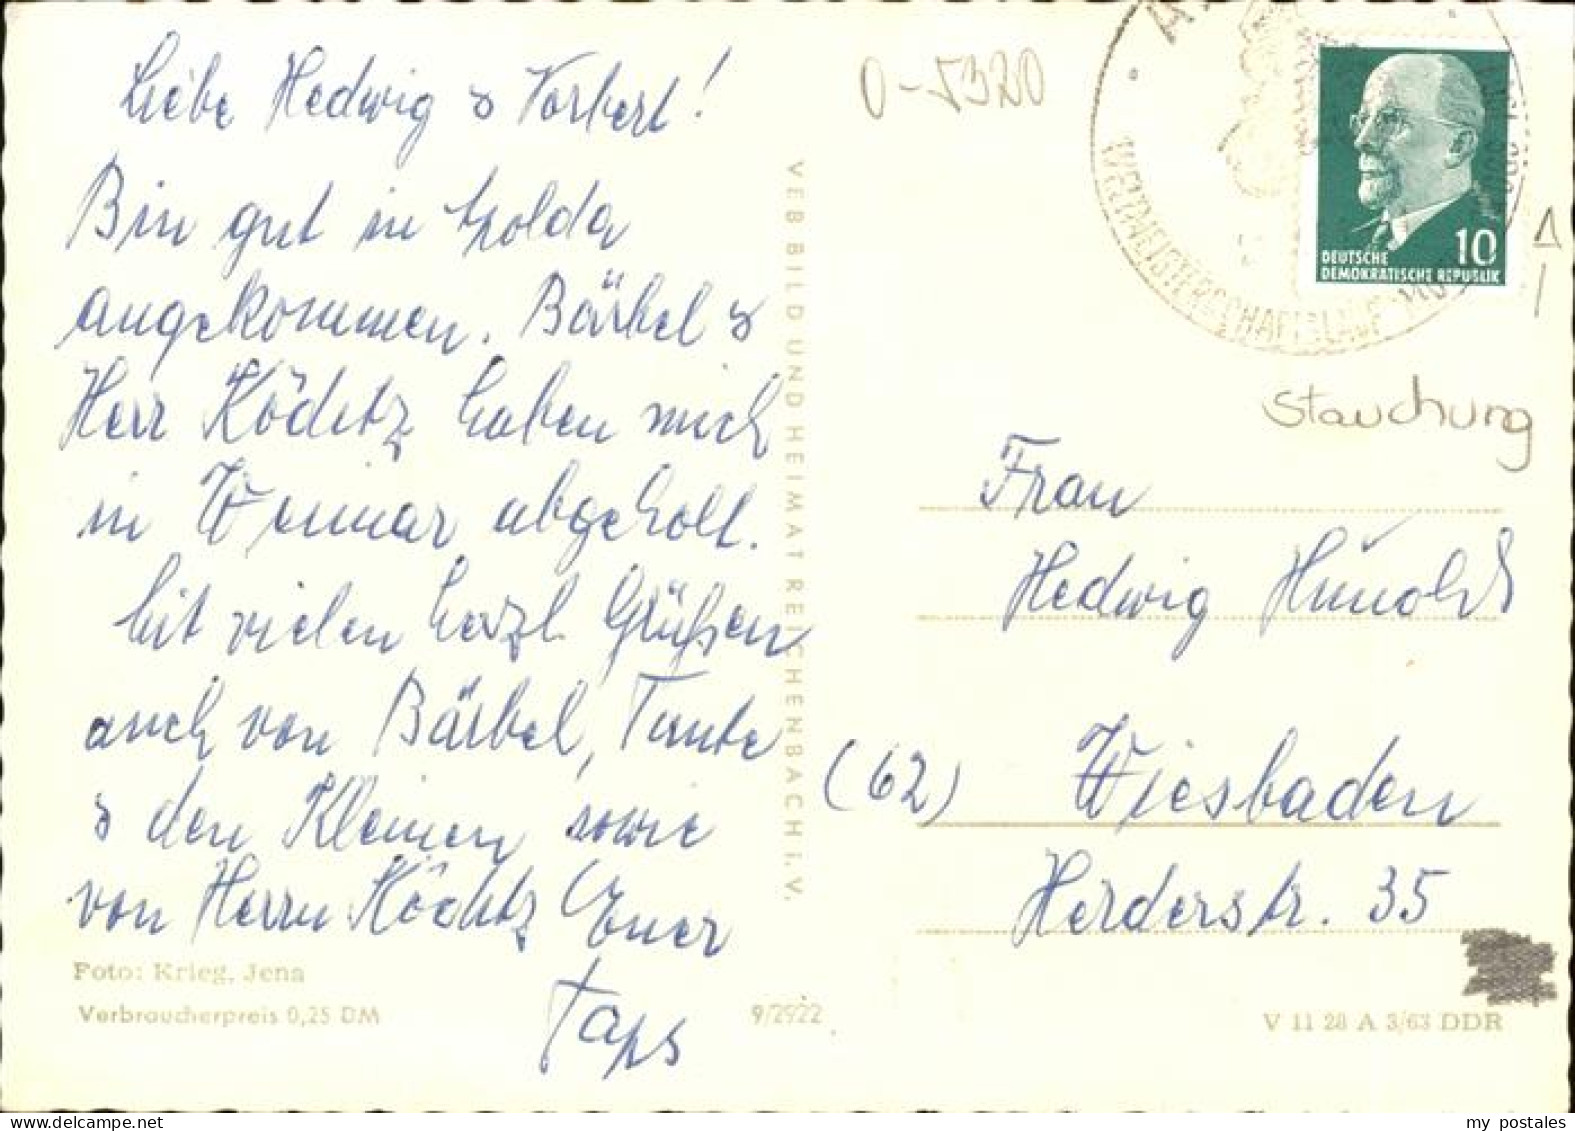 Liebe Hedwig & Norbert!
Bin gut in Apolda
angekommen. Bärbel &
Herr Köditz haben mich
in Weimar abgeholt.
Mit vielen herzl. Grüßen
auch von Bärbel, Tante
& den Kleinen sowie
von Herrn Köditz Euer
Taps
Foto: Krieg, Jena
Verbraucherpreis 0,25 DM
9/2922
VEB BILD UND HEIMAT REICHENBACH I. V.
O-5320
WELTMEISTERSCHAFTSLAUF
10
DEUTSCHE
DEMOKRATISCHE REPUBLIK
Stauchung
Frau
Hedwig Hunold
(62) Wiesbaden
Herderstr. 35
V 11 28 A 3/63 DDR
my postales